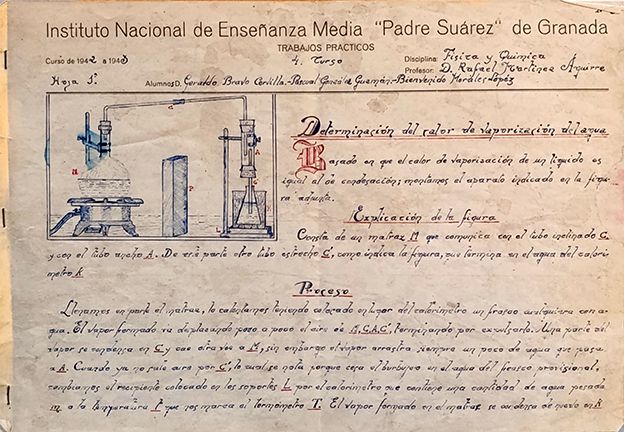 Instituto Nacional de Enseñanza Media "Padre Suárez" de Granada
TRABAJOS PRACTICOS
Curso de 1942 a 1943
4. Curso
Disciplina: Física y Química
Profesor: D. Rafael Martínez Aguirre
Hoja 1ª
Alumnos D. Geraldo Bravo Cervilla.-Pascual González Guzmán.-Bienvenido Morales López
Determinación del calor de vaporización del agua
Basado en que el calor de vaporización de un líquido es
igual al de condensación; montamos el aparato indicado en la figu-
ra adjunta.
Explicación de la figura
Consta de un matraz M que comunica con el tubo inclinado C,
y con el tubo ancho A. De este parte otro tubo estrecho C', como indica la figura, que termina en el agua del calorí-
metro K
Proceso
Llenamos en parte el matraz, lo calentamos teniendo colocado en lugar del calorímetro un frasco cualquiera con a-
gua. El vapor formado va desplazando poco a poco el aire de M, C, A, C', terminando por expulsarlo. Una parte del
vapor se condensa en C y cae otra vez a M, sin embargo el vapor arrastra siempre un poco de agua que pasa
a A. Cuando ya no sale aire por C', lo cual se nota porque cesa el burbujeo en el agua del frasco provisional,
cambiamos el recipiente colocado en los soportes L por el calorímetro que contiene una cantidad de agua pesada
m a la temperatura t que nos marca el termómetro T. El vapor formado en el matraz se condensa de nuevo en K